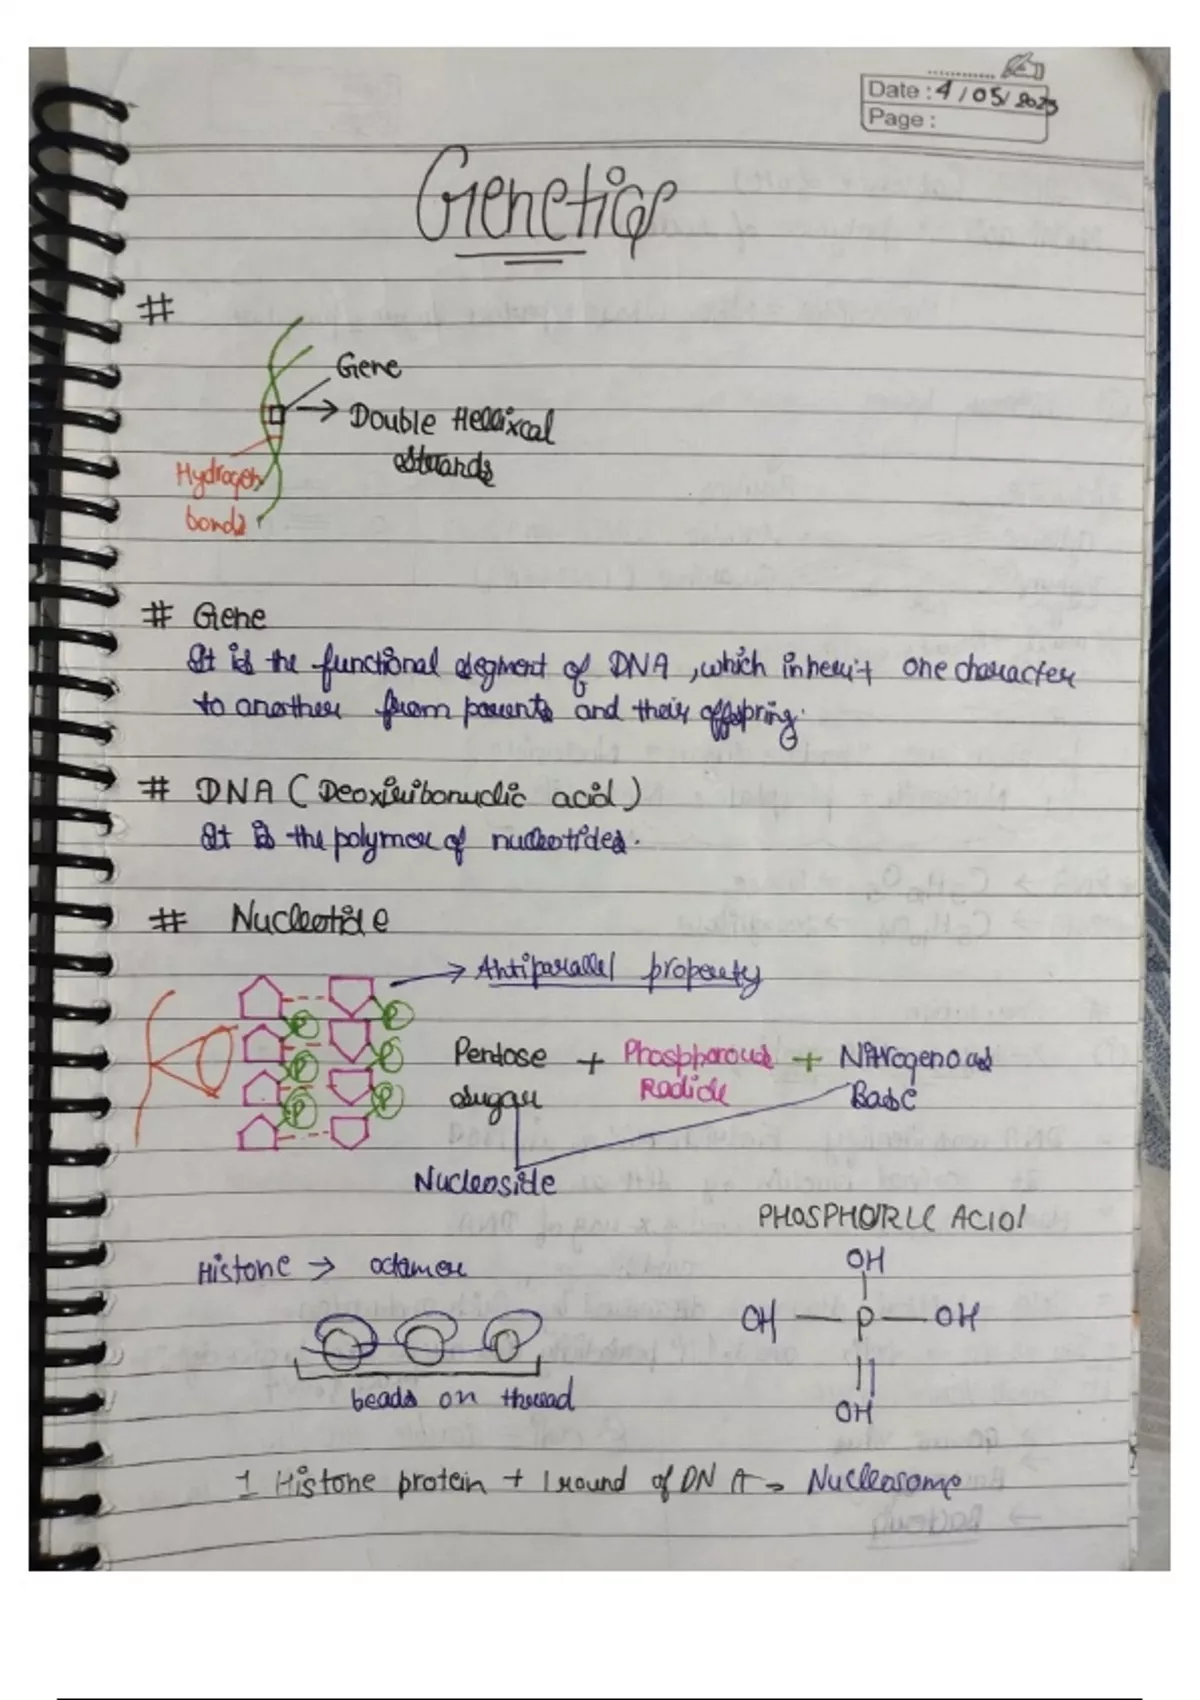 Date : 4/05/2023
Page :
Genetics
#
Gene
Double Hellixcal
Strands
Hydrogen
bonds
# Gene
It is the functional segment of DNA, which inherit one character
to another from parents and their offspring.
# DNA (Deoxiribonuclic acid)
It is the polymer of nucleotides.
# Nucleotide
Antiparallel property
P P
P P
P P
Pentose + Phosphorous + Nitrogenous
sugar Radicle Base
Nucleoside
PHOSPHORIC ACID
Histone → octamer
OH
OH — P — OH
OH
beads on thread
1 Histone protein + 1 round of DNA → Nucleosome